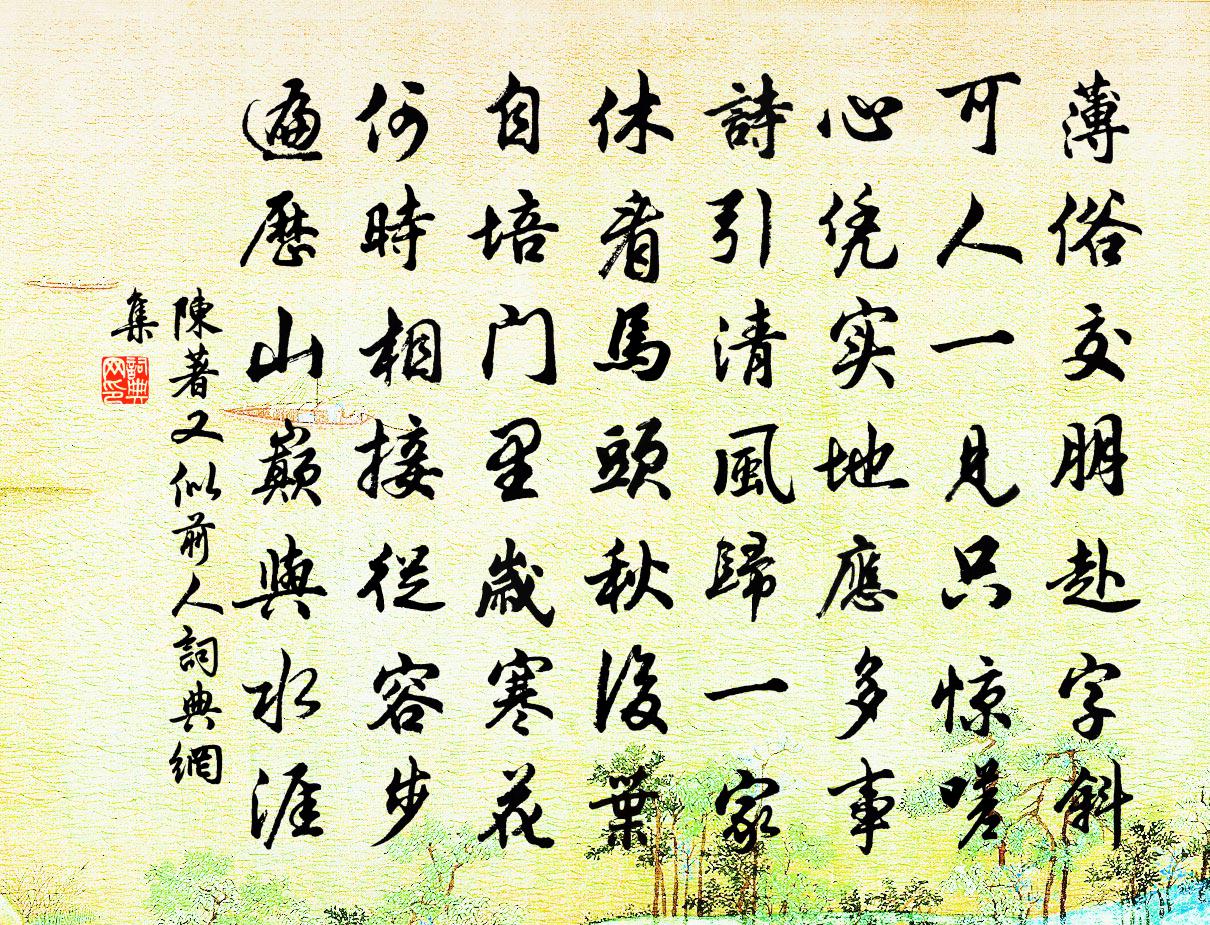 薄俗交朋赴字斜
可人一見只惊嗟
心凭实地應多事
詩引清風歸一家
休看馬頭秋後葉
自培门里歲寒花
何時相接從容步
遍歷山巅與水涯
陳著又似前人詞典網
集
詞典
网印